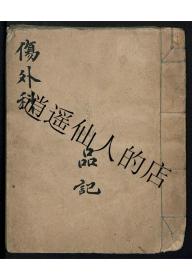 傷外科
品記
逍遥仙人的店